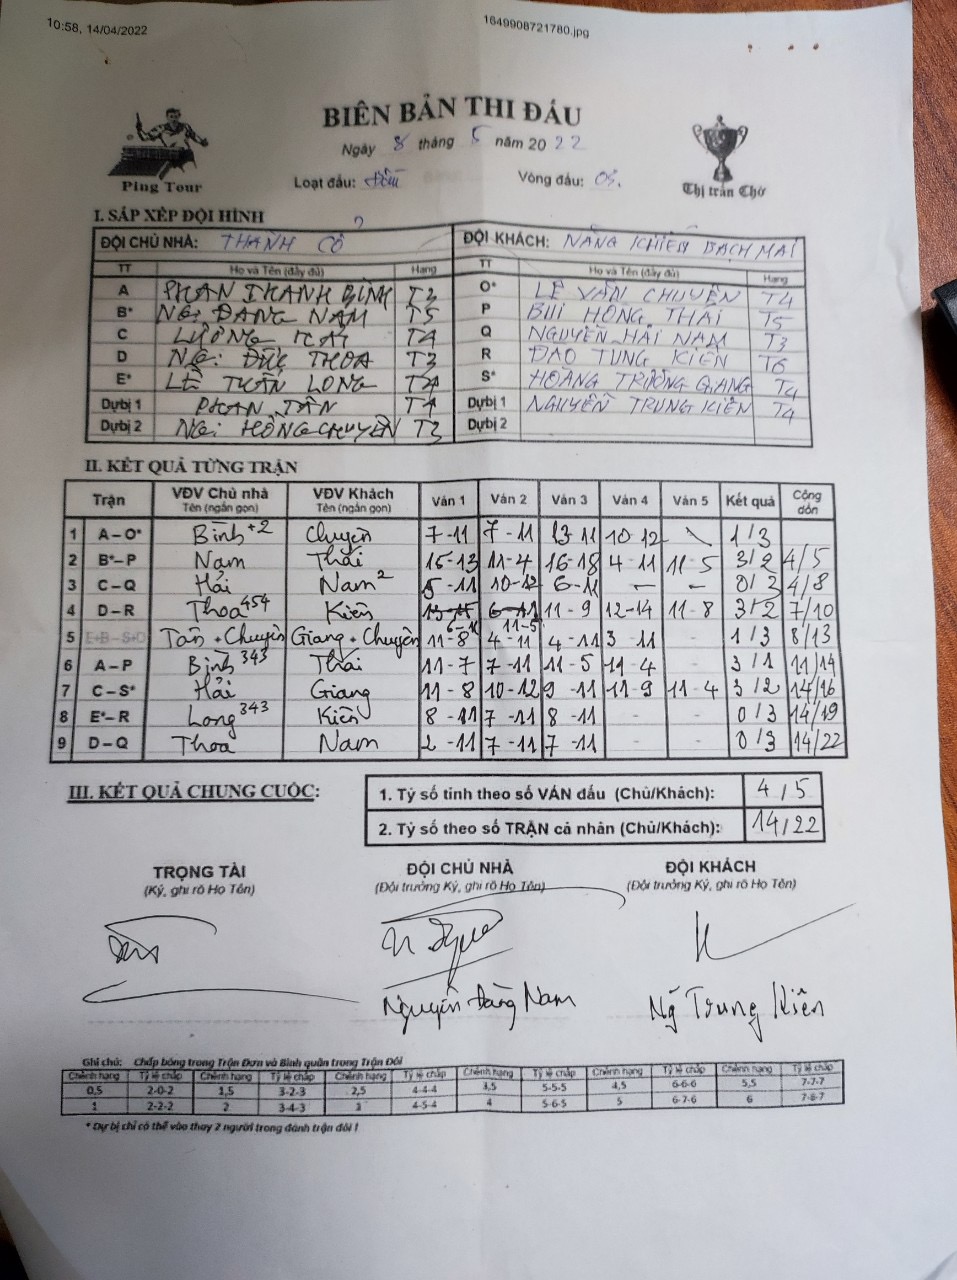 10:58, 14/04/2022
1649908721780.jpg
BIÊN BẢN THI ĐẤU
Ngày 8 tháng 5 năm 2022
Ping Tour
Loạt đấu:
Vòng đấu: 03.
Thị trấn Chờ
I. SẮP XẾP ĐỘI HÌNH
ĐỘI CHỦ NHÀ: THÀNH CỔ
ĐỘI KHÁCH: NĂNG KHIẾU BẠCH MAI
TT Họ và Tên (đầy đủ) Hạng TT Họ và Tên (đầy đủ) Hạng
A PHAN THANH BÌNH T3 O* LÊ VĂN CHUYÊN T4
B* NG. ĐĂNG NAM T5 P BUI HỒNG THÁI T5
C LƯƠNG HẢI T4 Q NGUYỄN HẢI NAM T3
D NG. ĐỨC THOA T3 R ĐÀO TÙNG KIÊN T6
E* LÊ TUẤN LONG T4 S* HOÀNG TRƯỜNG GIANG T4
Dự bị 1 PHAN TÂN T4 Dự bị 1 NGUYỄN TRUNG KIÊN T4
Dự bị 2 NG. HỒNG CHUYÊN T3 Dự bị 2
II. KẾT QUẢ TỪNG TRẬN
Trận VĐV Chủ nhà Tên (ngắn gọn) VĐV Khách Tên (ngắn gọn) Ván 1 Ván 2 Ván 3 Ván 4 Ván 5 Kết quả Cộng dồn
1 A – O* Bình+2 Chuyên 7-11 7-11 13-11 10-12 \ 1/3
2 B* – P Nam Thái 15-13 11-4 16-18 4-11 11-5 3/2 4/5
3 C – Q Hải Nam2 5-11 10-12 6-11 - - 0/3 4/8
4 D – R Thoa454 Kiên 6-11 11-5 11-9 12-14 11-8 3/2 7/10
5 E+B – S+O Tân + Chuyên Giang + Chuyên 11-8 4-11 4-11 3-11 1/3 8/13
6 A – P Bình343 Thái 11-7 7-11 11-5 11-4 3/1 11/14
7 C – S* Hải Giang 11-8 10-12 9-11 11-9 11-4 3/2 14/16
8 E* – R Long343 Kiên 8-11 7-11 8-11 - - 0/3 14/19
9 D – Q Thoa Nam 2-11 7-11 7-11 - - 0/3 14/22
III. KẾT QUẢ CHUNG CUỘC:
1. Tỷ số tính theo số VÁN đấu (Chủ/Khách): 4/5
2. Tỷ số theo số TRẬN cá nhân (Chủ/Khách): 14/22
TRỌNG TÀI ĐỘI CHỦ NHÀ ĐỘI KHÁCH
(Ký, ghi rõ Họ Tên) (Đội trưởng Ký, ghi rõ Họ Tên) (Đội trưởng Ký, ghi rõ Họ Tên)
Nguyễn Đăng Nam Ng Trung Kiên
Ghi chú: Chấp bóng trong Trận Đơn và Bình quân trong Trận Đôi
Chênh hạng Tỷ lệ chấp Chênh hạng Tỷ lệ chấp Chênh hạng Tỷ lệ chấp Chênh hạng Tỷ lệ chấp Chênh hạng Tỷ lệ chấp Chênh hạng Tỷ lệ chấp
0,5 2-0-2 1,5 3-2-3 2,5 4-4-4 3,5 5-5-5 4,5 6-6-6 5,5 7-7-7
1 2-2-2 2 3-4-3 3 4-5-4 4 5-6-5 5 6-7-6 6 7-8-7
* Dự bị chỉ có thể vào thay 2 người trong đánh trận đôi !